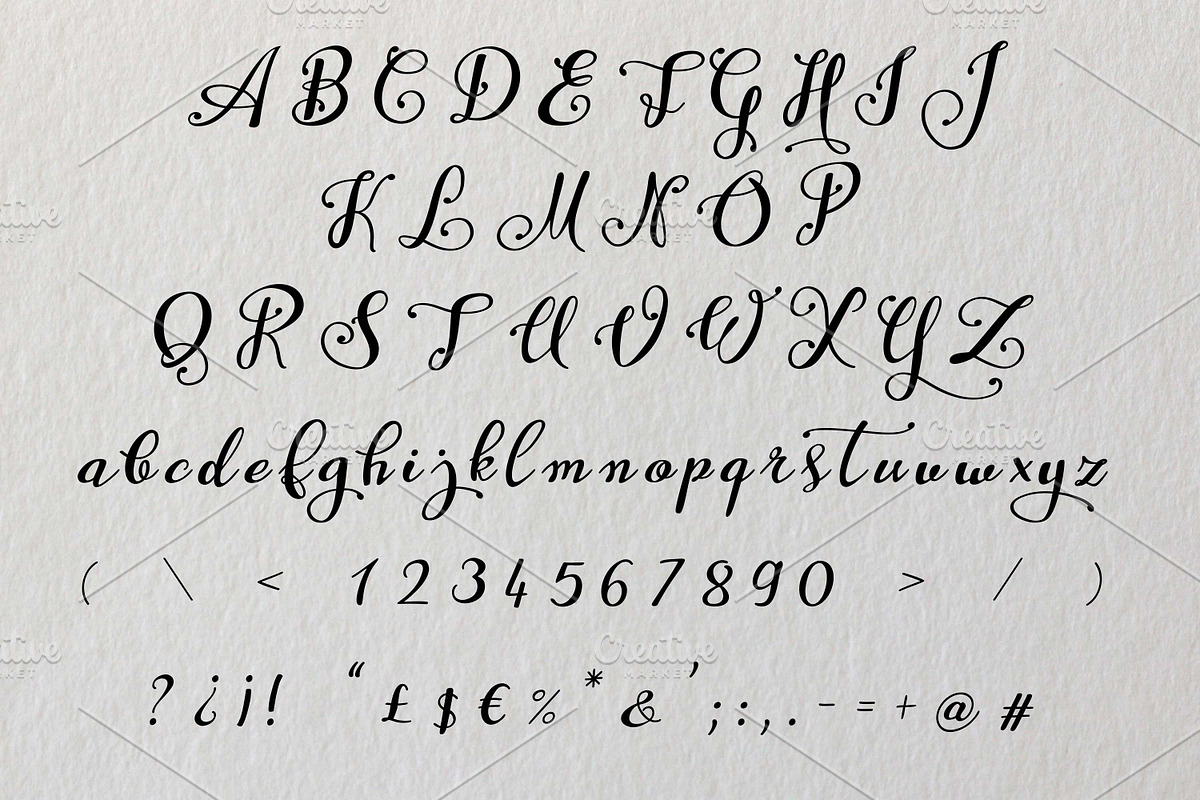 A B C D E F G H I J
K L M N O P
Q R S T U V W X Y Z
a b c d e f g h i j k l m n o p q r s t u v w x y z
( \ < 1 2 3 4 5 6 7 8 9 0 > / )
? ¿ ¡ ! “ £ $ € % * & ’ ; : , . - = + @ #
Creative
MARKET
Creative
MARKET
Creative
MARKET
Creative
MARKET
Creative
MARKET
Creative
MARKET
Creative
MARKET
Creative
MARKET